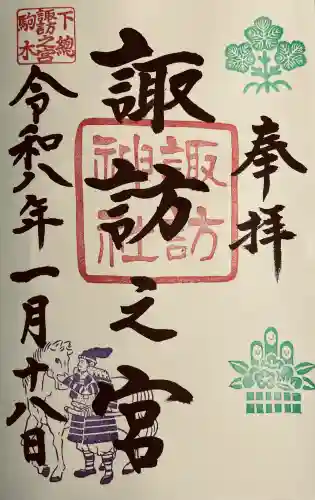 奉拝
諏訪之宮
諏訪神社
下總
諏訪之宮
駒木
令和八年一月十八日